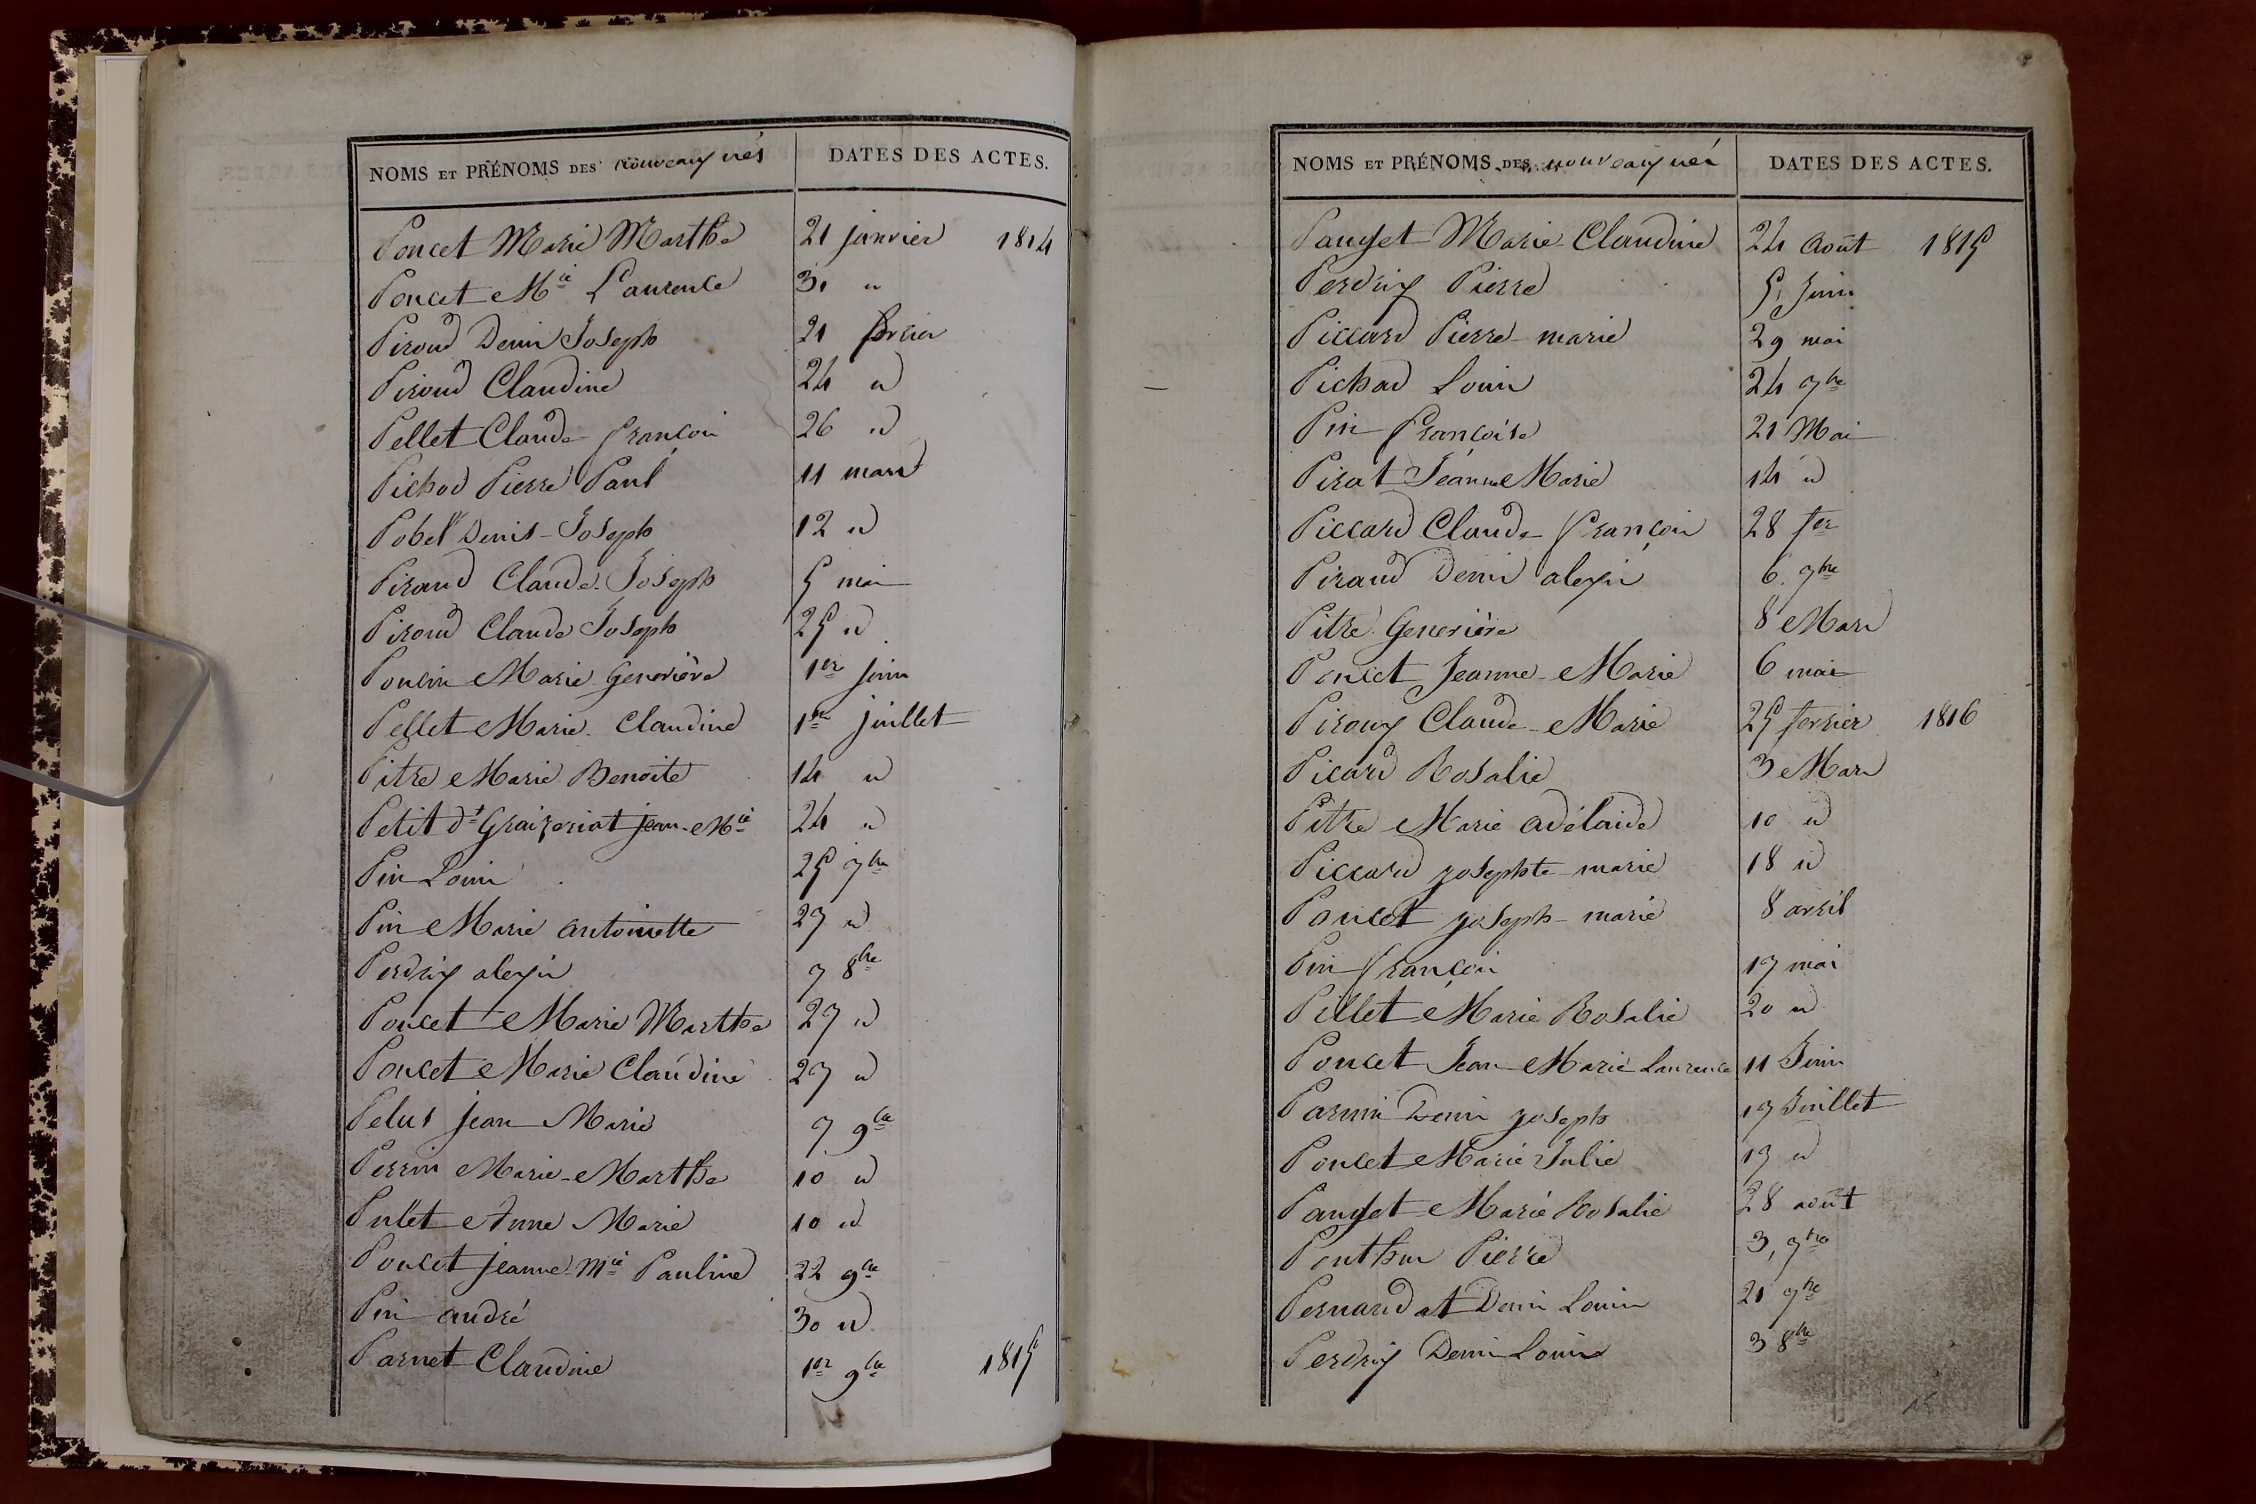 NOMS ET PRÉNOMS DES nouveaux nés DATES DES ACTES.
Poncet Marie Marthe 21 janvier 1814
Poncet Mie Laurence 31 "
Piroud Denis Joseph 21 fevrier
Piroud Claudine 24 id
Pellet Claude françois 26 id
Pichod Pierre Paul 11 mars
Pobel Denis-Joseph 12 id
Piraud Claude Joseph 5 mai
Piroud Claude Joseph 25 id
Poncin Marie Genevieve 1er juin
Pellet Marie Claudine 1er juillet
Pitre Marie Benoite 14 id
Petit dt jean-Mie 24 id
Pin Louis 25 7bre
Pin Marie antoinette 27 id
Perdrix alexis 7 8bre
Poncet Marie Marthe 27 id
Poncet Marie Claudine 27 id
Pelus jean Marie 7 9bre
Perrin Marie-Marthe 10 id
Pulet Anne Marie 10 id
Poncet jeanne-Mie Pauline 22 9bre
Pin andré 30 id
Parnet Claudine 1er 9bre 1815
NOMS ET PRÉNOMS DES nouveaux nés DATES DES ACTES.
Pauget Marie Claudine 24 Août 1815
Perdrix Pierre 5 Juin
Piccard Pierre-marie 29 mai
Pichod Louis 24 7bre
Pin françoise 21 Mai
Pirat Jeanne Marie 14 id
Piccard Claude françois 28 fer
Piraud Denis alexis 6 7bre
Pitre Genevieve 8 Mars
Poncet Jeanne-Marie 6 mai
Piroux Claude-Marie 25 fevrier 1816
Picard Rosalie 3 Mars
Pitre Marie adélaide 10 id
Piccard josephte-marie 18 id
Poncet joseph-marie 8 avril
Pin françois 17 mai
Pillet Marie Rosalie 20 id
Poncet Jean Marie Laurence 11 Juin
Parmin Denis joseph 17 Juillet
Poncet Marie Julie 17 id
Pauget Marie Rosalie 28 août
Ponthus Pierre 3, 7bre
Pernaudat Denis Louis 21 7bre
Perdrix Denis Louis 3 8bre